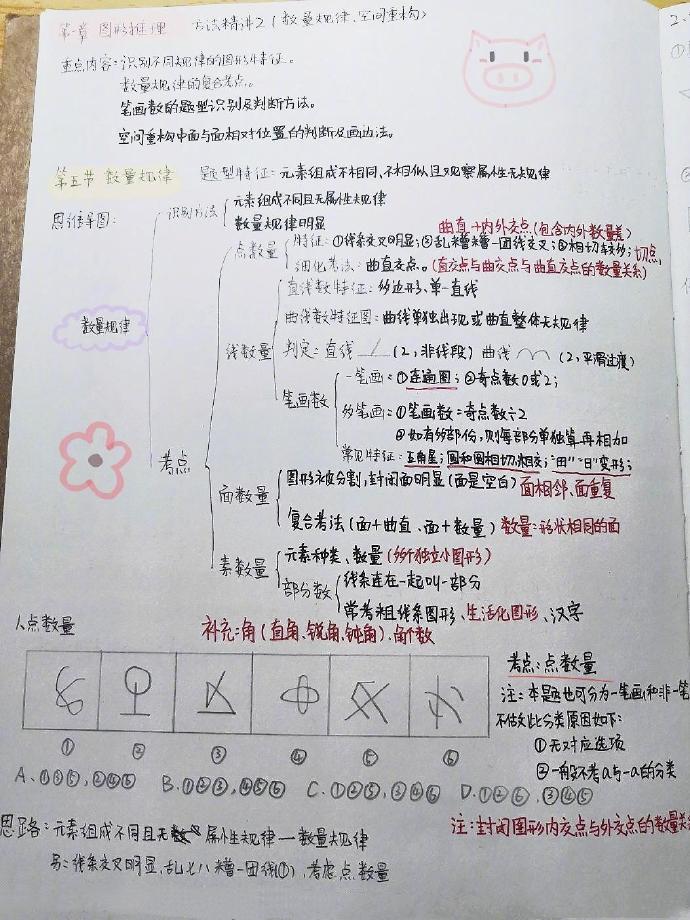 第一章 图形推理 方法精讲2(数量规律、空间重构)
重点内容:识别不同规律的图形特征。
数量规律的复合考点。
笔画数的题型识别及判断方法。
空间重构中面与面相对位置的判断及画边法。
第五节 数量规律 题型特征:元素组成不相同、不相似且观察属性无规律
思维导图:
识别方法
元素组成不同且无属性规律
数量规律明显
曲直+内外交点(包含内外数量差)
数量规律
考点
点数量
特征:①线条交叉明显;②乱糟糟一团线交叉;③相切较多;切点
细化考法:曲直交点。(直交点与曲交点与曲直交点的数量关系)
线数量
直线数特征:多边形、单一直线
曲线数特征图:曲线单独出现或曲直整体无规律
判定:直线 (2,非线段) 曲线 (2,平滑过度)
笔画数
一笔画:①连通图;②奇点数0或2;
多笔画:①笔画数=奇点数÷2
②如有多部份,则每部分单独算再相加
常见特征:五角星;圆和圆相切、相交;"田""日"变形;
面数量
图形被分割,封闭面明显(面是空白) 面相邻、面重复
复合考法(面+曲直、面+数量) 数量=形状相同的面
素数量
元素种类、数量(多个独立小图形)
部分数
线条连在一起叫一部分
常考粗线条图形、生活化图形、汉字
人点数量
补充:角(直角、锐角、钝角)、角个数
考点:点数量
注:本题也可分为一笔画和非一笔
不做如此分类原因如下:
①无对应选项
②一般不考a与-a的分类
① ② ③ ④ ⑤ ⑥
A、①③⑤,②④⑥ B、①②③,④⑤⑥ C、①②⑤,③④⑥ D、①②⑥,③④⑤
思路:元素组成不同且无属性规律—数量规律
注:封闭图形内交点与外交点的数量关
另:线条交叉明显、乱七八糟一团线(①),考虑点数量